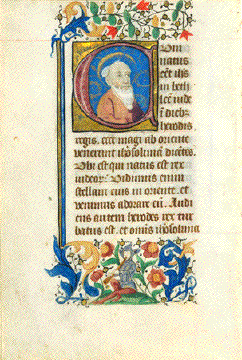 Cum
natus
eet ihs
in beth
leē iude
ī dieb
herodis
regis. ecce magi ab oriente
venerunt iherosolimā dicētes.
Vbi est qui natus est rex
iudeor. Vidimus enim
stellam eius in oriente. et
venimus adorare eū. Audi
ens autem herodes rex tur
batus est. et omīs iherosolima